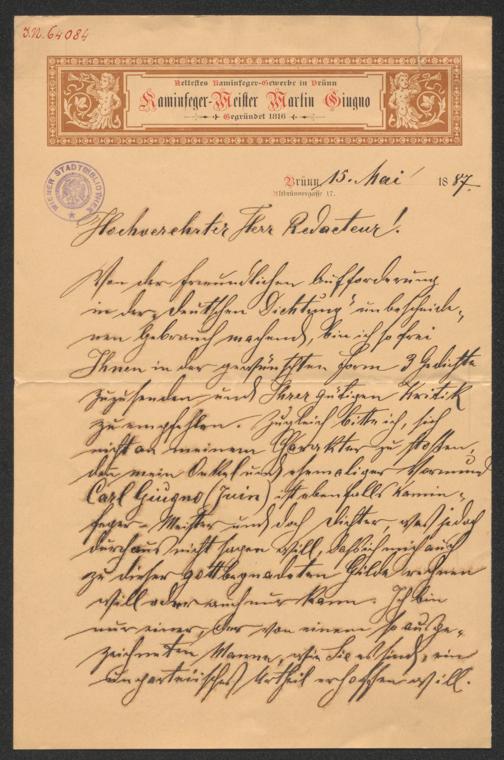 J.N. 64084
Aeltestes Kaminfeger-Gewerbe in Brünn
Kaminfeger-Meister Martin Giugno
Gegründet 1816
WIENER STADTBIBLIOTHEK
Brünn, 15. Mai 1887
Altbrünnergasse 17.
Hochverehrter Herr Redacteur!
Von der freundlichen Aufforderung
in der „deutschen Dichtung" unbescheide-
nen Gebrauch machend, bin ich so frei
Ihnen in der gewünschten Form 3 Gedichte
zuzusenden und Ihrer gütigen Kritik
zu empfehlen. Zugleich bitte ich, sich
nicht an meinem Charakter zu stoßen,
den mein Onkel und ehemaliger Vormund
Carl Giugno (Juin) ist ebenfalls Kamin-
feger-Meister und doch Dichter, was jedoch
durchaus nicht sagen will, daß ich mich auch
zu dieser gottbegnadeten Gilde rechnen
will oder auch nur kann. Ich bin
nur einer, der von einem so ausge-
zeichneten Manne, wie Sie es sind, ein
unparteiisches Urtheil erhoffen will.